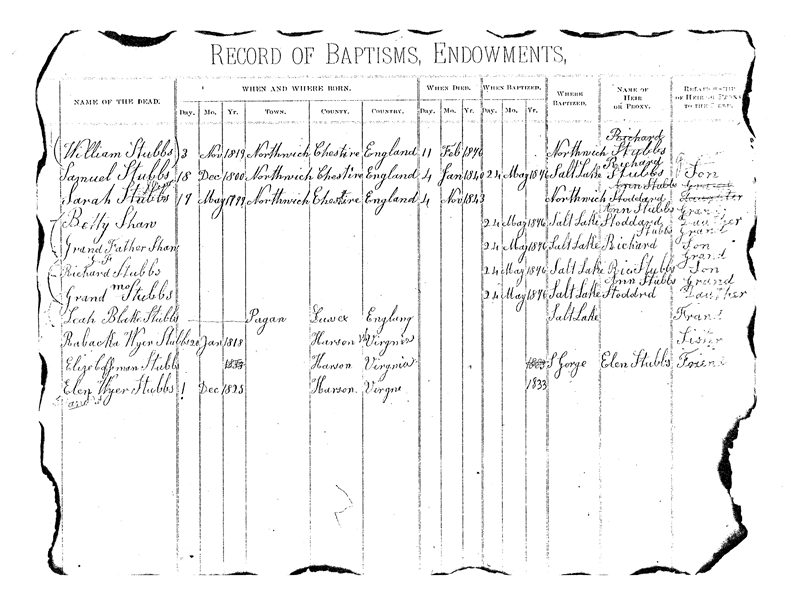 RECORD OF BAPTISMS, ENDOWMENTS,
NAME OF THE DEAD. WHEN AND WHERE BORN. WHEN DIED. WHEN BAPTIZED. WHERE BAPTIZED. NAME OF HEIR OR PROXY. RELATIONSHIP OF HEIR OR PROXY TO THE DEAD.
Day. Mo. Yr. TOWN. COUNTY. COUNTRY. Day. Mo. Yr. Day. Mo. Yr.
Richard
William Stubbs 3 Nov 1819 Northwich Chestire England 11 Feb 1846 Northwich Stubbs
Richard
Samuel Stubbs 18 Dec 1800 Northwich Chestire England 4 Jan 1840 24 May 1876 Salt Lake Stubbs Son
Ann Stubbs
Sarah Stubbs 17 May 1799 Northwich Chestire England 4 Nov 1843 Northwich Stoddard Daughter
Ann Stubbs Grand
Betty Shaw 24 May 1876 Salt Lake Stoddard Daugher
Stubbs Grand
Grand Father Shaw 24 May 1876 Salt Lake Richard Son
G.F. Grand
Richard Stubbs 24 May 1876 Salt Lake Ric Stubbs Son
mo Ann Stubbs Grand
Grand Stubbs 24 May 1876 Salt Lake Stoddrd Daugher
Leah Blatte Stubbs Pagan Susex Englung Salt Lake Frand
Rabacka Wyer Stubbs 20 Jan 1818 Harson Va Virgnia Sister
Stubbs 1833 Harson Virgnia S Gorge Elen Stubbs Friend
Elen Wyer Stubbs 1 Dec 1825 Harson Virgne 1833